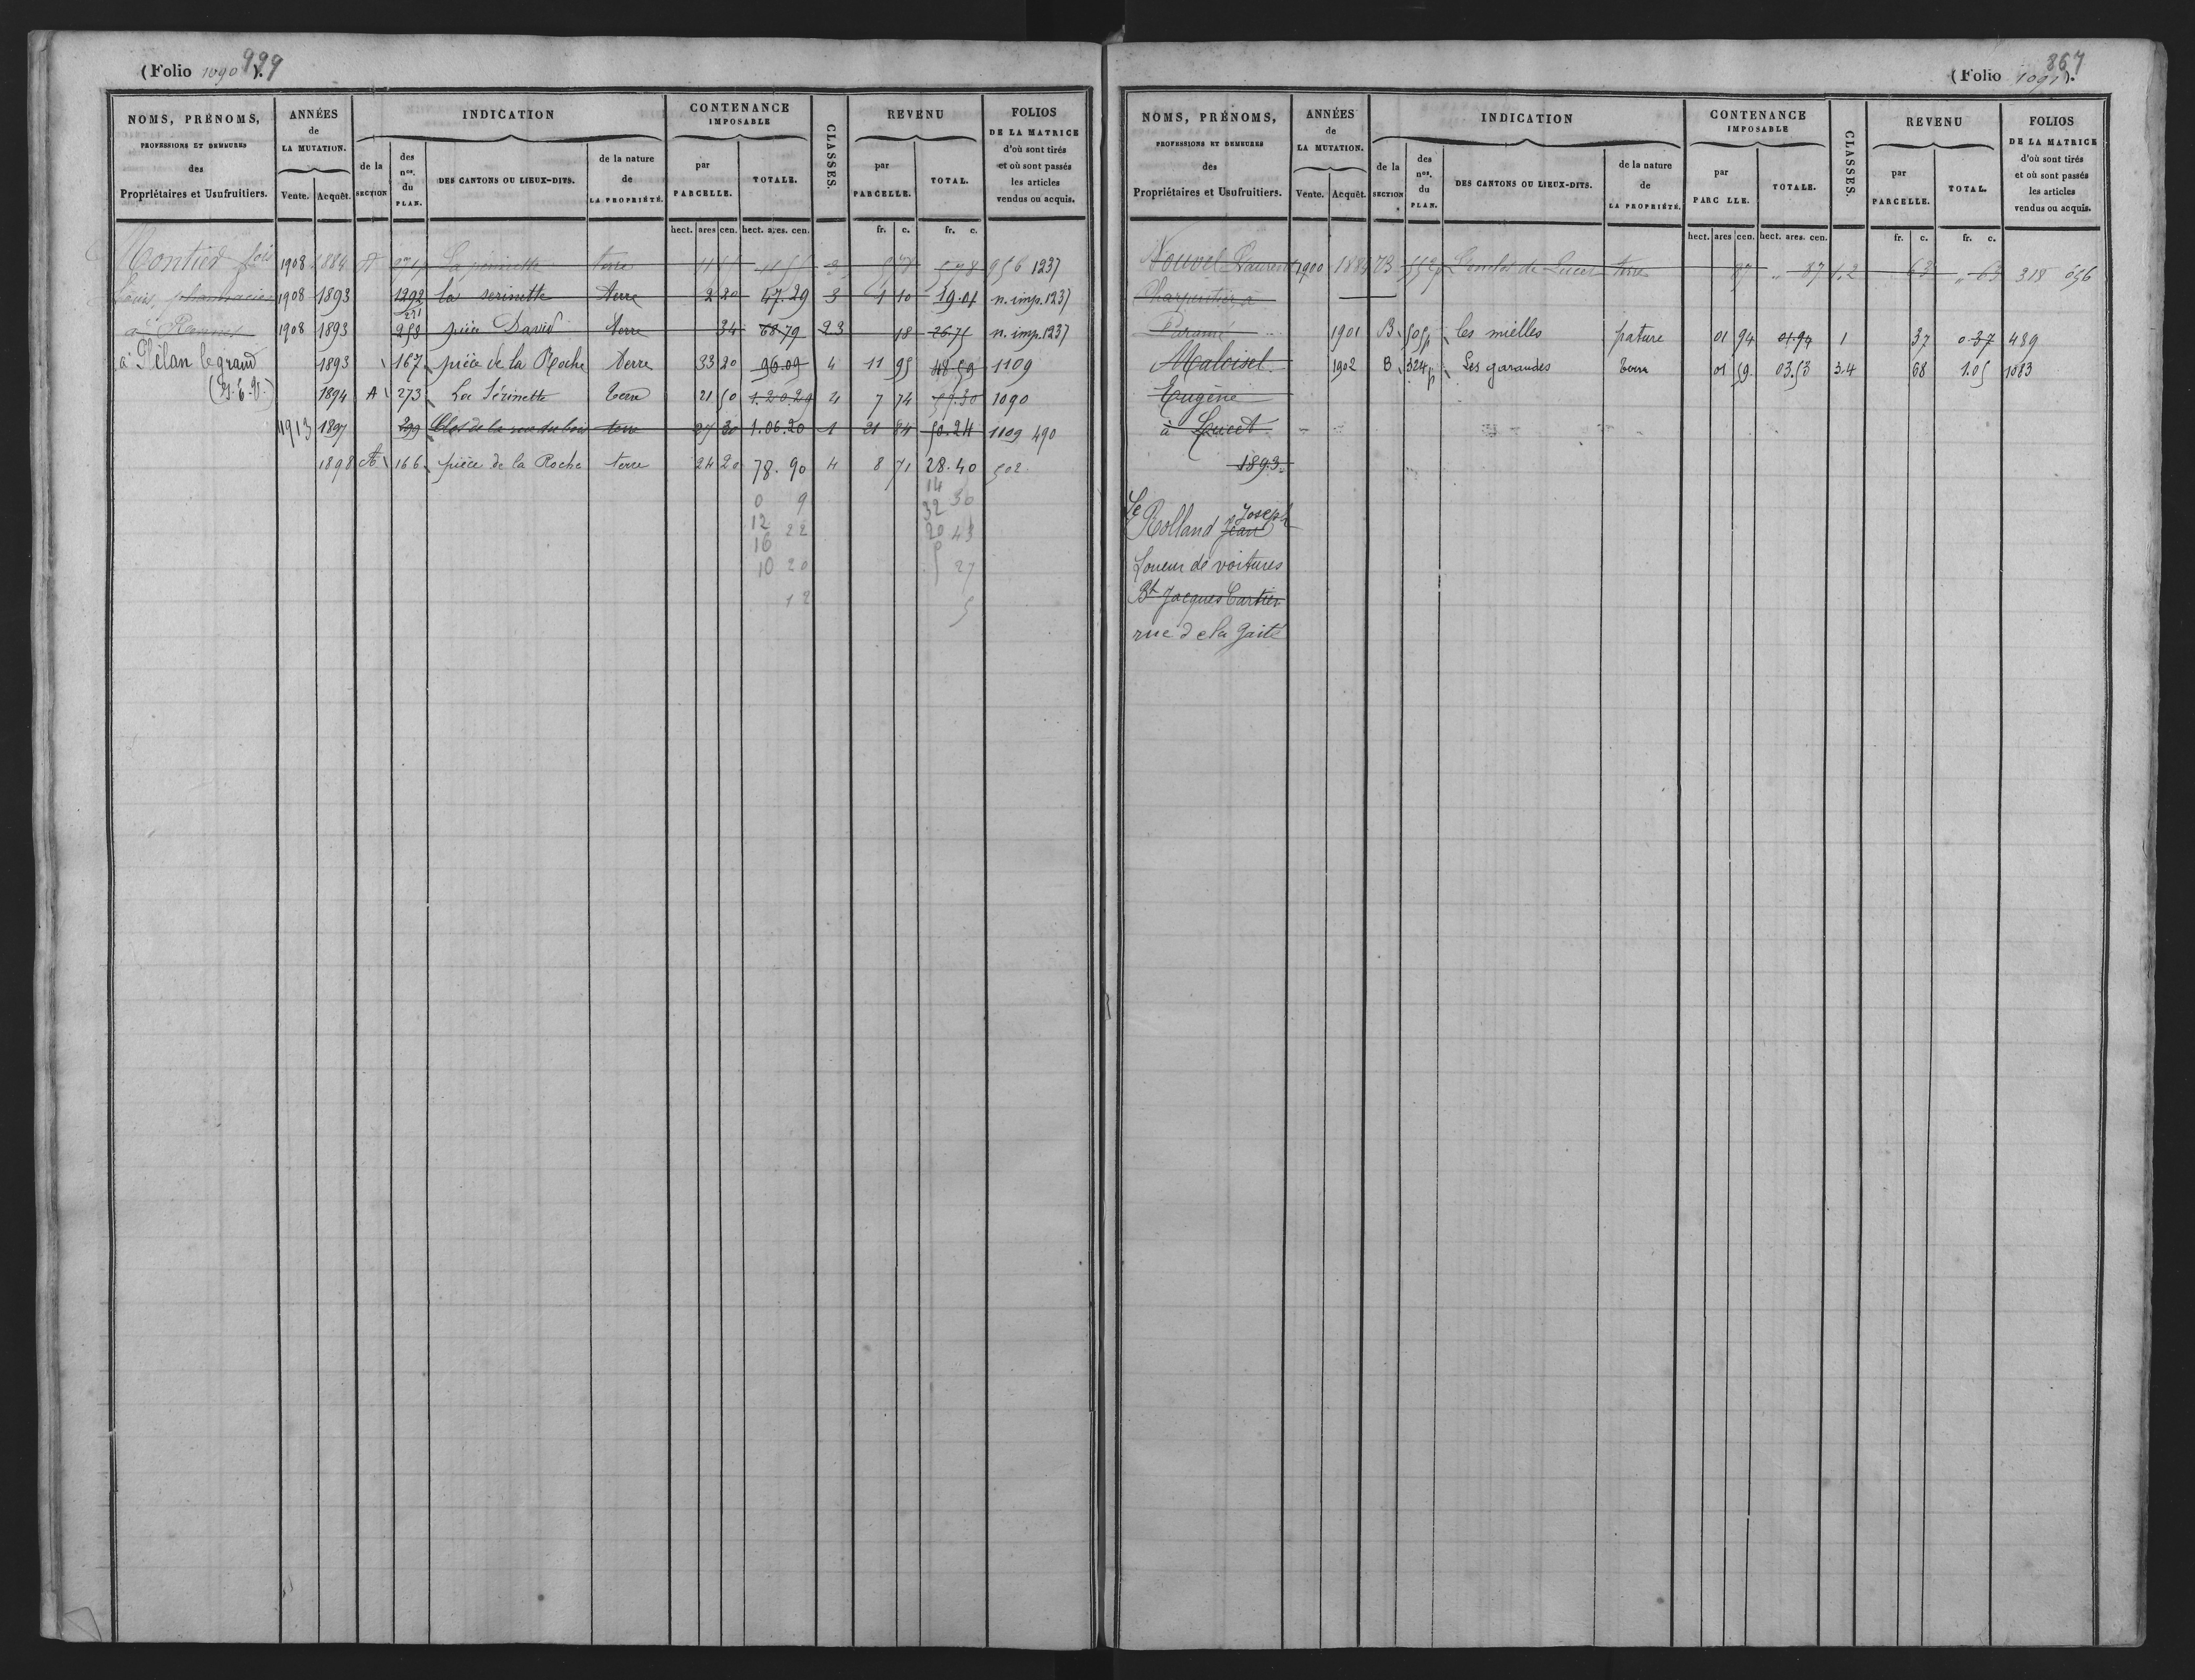 (Folio 1090 999).
NOMS, PRÉNOMS, PROFESSIONS ET DEMEURES des Propriétaires et Usufruitiers. ANNÉES de LA MUTATION. Vente. Acquêt. INDICATION de la SECTION des nos. du PLAN. DES CANTONS OU LIEUX-DITS. de la nature de LA PROPRIÉTÉ. CONTENANCE IMPOSABLE par PARCELLE. TOTALE. CLASSES. REVENU par PARCELLE. TOTAL. FOLIOS DE LA MATRICE d'où sont tirés et où sont passés les articles vendus ou acquis.
hect. ares cen. hect. ares. cen. fr. c. fr. c.
1908 1884 A terre 3 5 78 956 1237
Louis, pharmacien 1908 1893 1292 La serinette terre 2 20 47.29 3 1 10 19.01 n. imp. 1237
271
à Rennes 1908 1893 258 pièce David terre 34 68.79 23 18 26.75 n. imp. 1237
à Plélan le grand 1893 167 pièce de la Roche terre 33 20 96.09 4 11 95 48.59 1109
1894 A 273 La Sérinette terre 21 50 1.20.29 4 7 74 1090
1913 1897 299 terre 27 30 1.06.20 1 21 84 50.24 1109 490
1898 A 166 pièce de la Roche terre 24 20 78.90 4 8 71 28.40 502
14
0 9 32 30
12 22 20 43
16
10 20 27
12 5
(Folio 1091 867).
NOMS, PRÉNOMS, PROFESSIONS ET DEMEURES des Propriétaires et Usufruitiers. ANNÉES de LA MUTATION. Vente. Acquêt. INDICATION de la SECTION des nos. du PLAN. DES CANTONS OU LIEUX-DITS. de la nature de LA PROPRIÉTÉ. CONTENANCE IMPOSABLE par PARC LLE. TOTALE. CLASSES. REVENU par PARCELLE. TOTAL. FOLIOS DE LA MATRICE d'où sont tirés et où sont passés les articles vendus ou acquis.
hect. ares cen. hect. ares. cen. fr. c. fr. c.
Nouvel Laurent 1900 1884 B terre 87 " 87 1.2 63 " 63 318
Charpentier à
Paramé 1901 B 505p les mielles pature 01 94 01.94 1 37 0.37 489
Maloisel 1902 B 324p Les garandes terre 01 59 03.53 3.4 68 1.05 1083
Eugène
à Lucet
1893.
Le Rolland Jean Joseph
Loueur de voitures
Bt Jacques Cartier
rue de la Gaité